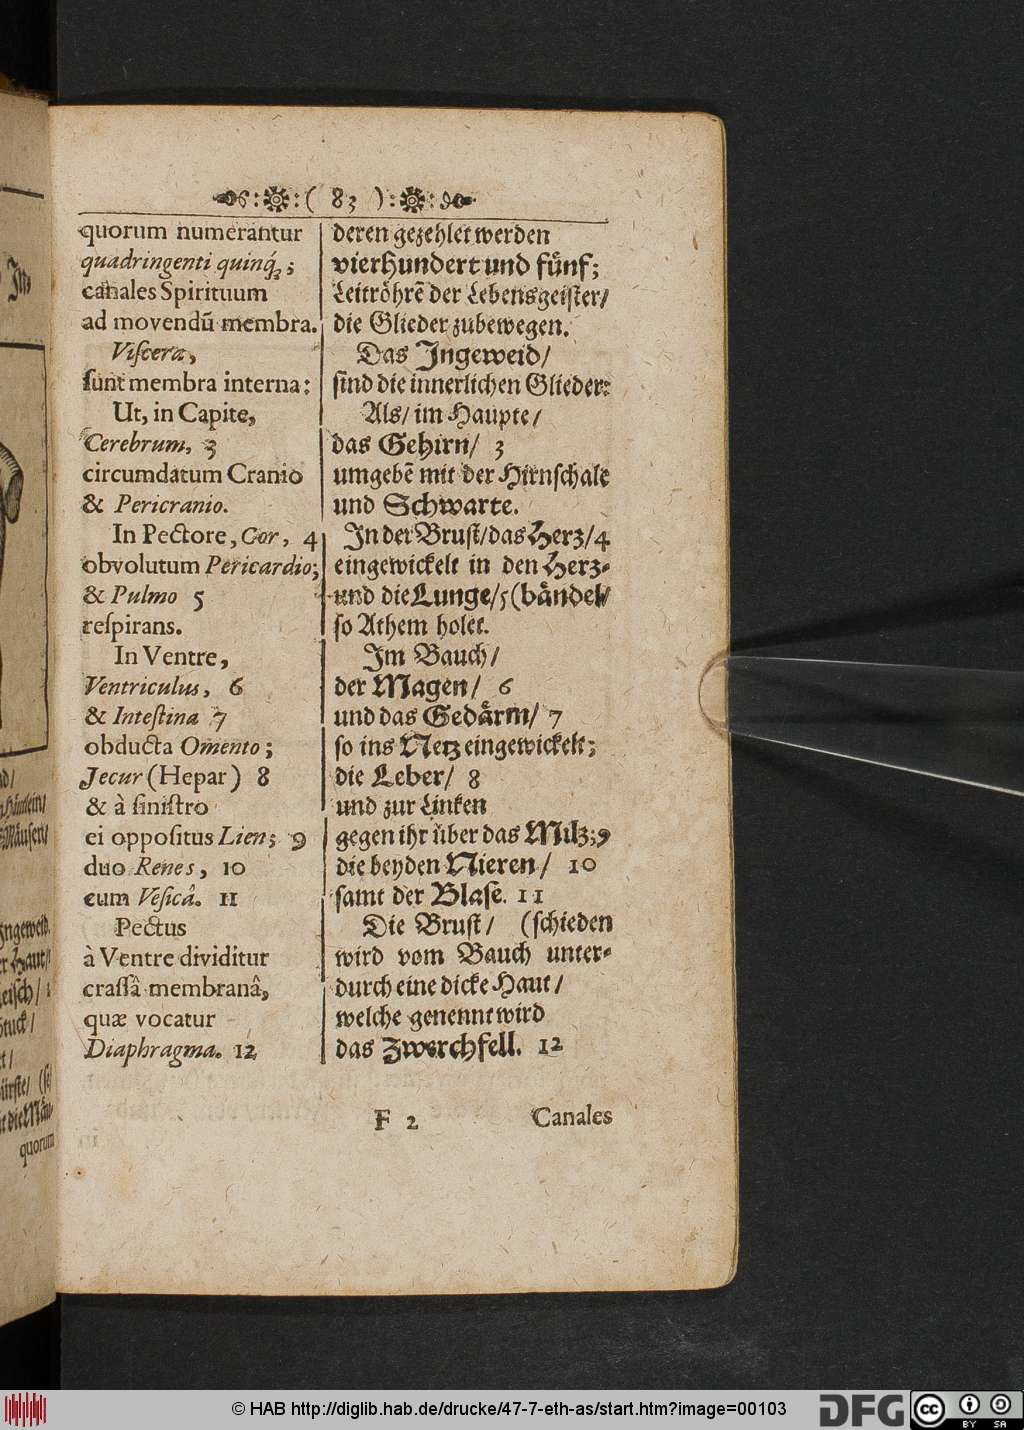 ( 83 )
quorum numerantur
quadringenti quinq́;;
canales Spirituum
ad movendũ membra.
Viſcera,
ſunt membra interna:
Ut, in Capite,
Cerebrum, 3
circumdatum Cranio
& Pericranio.
In Pectore, Cor, 4
obvolutum Pericardio;
& Pulmo 5
reſpirans.
In Ventre,
Ventriculus, 6
& Inteſtina 7
obducta Omento;
Jecur (Hepar) 8
& à ſiniſtro
ei oppoſitus Lien; 9
duo Renes, 10
cum Veſicâ. 11
Pectus
à Ventre dividitur
craſſâ membranâ,
quæ vocatur
Diaphragma. 12
deren gezehlet werden
vierHundert und fuͤnf;
Leitroͤhrẽ der Lebensgeiſter/
die Glieder zubewegen.
Das Ingeweid/
ſind die innerlichen Glieder:
Als/ im Haupte/
das Gehirn/ 3
umgebẽ mit der Hirnſchale
und Schwarte.
In der Bruſt/ das Herz/ 4
eingewickelt in den Herz-
und die Lunge/ 5 (baͤndel/
ſo Athem holet.
Im Bauch/
der Magen/ 6
und das Gedaͤrm/ 7
ſo ins Netz eingewickelt;
die Leber/ 8
und zur Linken
gegen ihr uͤber das Milz; 9
die beyden Nieren/ 10
ſamt der Blaſe. 11
Die Bruſt/ (ſchieden
wird vom Bauch unter-
durch eine dicke Haut/
welche genennt wird
das Zwerchfell. 12
F 2 Canales
quorum
© HAB http://diglib.hab.de/drucke/47-7-eth-as/start.htm?image=00103
DFG
cc BY SA